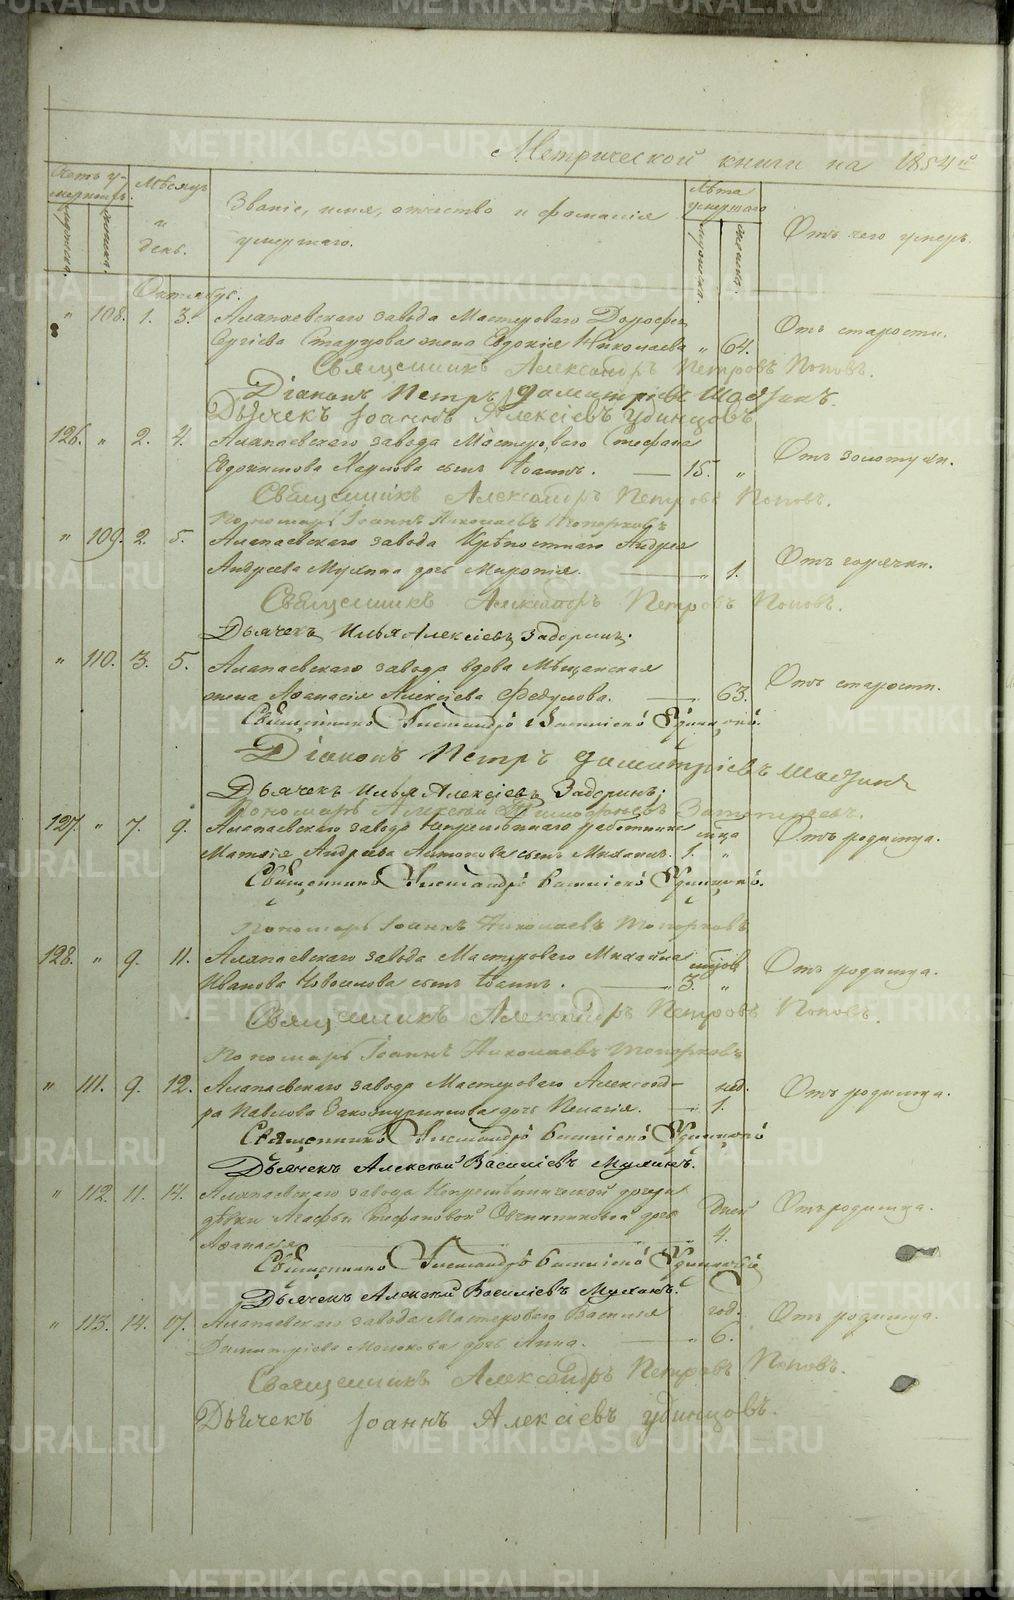 Метрической книги на 1854 й
Счетъ у-
мершихъ.
Мѣсяцъ
и
день.
Званіе, имя, отчество и фамилія
умершаго.
Лѣта
умершаго
Отъ чего умеръ.
Октябрь.
" 108. 1. 3. Алапаевскаго завода Мастероваго Дорофея
Сергіева Старцова жена Евдокія Николаева " 64. Отъ старости.
Священникъ Александръ Петровъ Поповъ.
Діаконъ Петръ Димитріевъ
Дьячекъ Іоаннъ Алексіевъ Удинцовъ
126. " 2. 4. Алапаевскаго завода Мастероваго Стефана
Евдокимова сынъ Іоаннъ. 15. " Отъ золотухи.
Священникъ Александръ Петровъ Поповъ.
Пономарь Іоаннъ Николаевъ Топорковъ
" 109. 2. 5. Алапаевскаго завода Крѣпостнаго Андрея
Андреева Мухина дочь " 1. Отъ горячки.
Священникъ Александръ Петровъ Поповъ.
Дьячекъ Илья Алексіевъ Задоринъ.
" 110. 3. 5. Алапаевскаго завода вдова Мѣщанская
жена Афанасія Алексіева Федулова. 63. Отъ старости.
Священникъ Александръ Василіевъ Удинцовъ.
Діаконъ Петръ Димитріевъ
Дьячекъ Илья Алексіевъ Задоринъ;
Пономарь Алексѣй
127. " 7. 9. Алапаевскаго завода Непремѣннаго работника
Матвія Андреева сынъ Михаилъ. 1. " Отъ родимца.
Священникъ Александръ Василіевъ Удинцовъ.
Пономарь Іоаннъ Николаевъ Топорковъ
128. " 9. 11. Алапаевскаго завода Мастероваго Михаила
Иванова Новоселова сынъ Іоаннъ. 3. " Отъ родимца.
Священникъ Александръ Петровъ Поповъ.
Пономарь Іоаннъ Николаевъ Топорковъ
" 111. 9. 12. Алапаевскаго завода Мастероваго Александ- нед.
ра Павлова Закожурникова дочь Пелагія. 1. Отъ родимца.
Священникъ Александръ Василіевъ Удинцовъ
Дьячекъ Алексѣй Василіевъ Мухинъ.
" 112. 11. 14. Алапаевскаго завода дочери
дѣвки Агафьи Стефановой Овчинниковой дочь дней Отъ родимца.
Афанасія 4.
Священникъ Александръ Василіевъ Удинцовъ
Дьячекъ Алексѣй Василіевъ Мухинъ.
" 113. 14. 17. Алапаевскаго завода Мастероваго Василія год. Отъ родимца.
Димитріева дочь Анна. " 6.
Священникъ Александръ Петровъ Поповъ.
Дьячекъ Іоаннъ Алексіевъ Удинцовъ.
METRIKI.GASO-URAL.RU